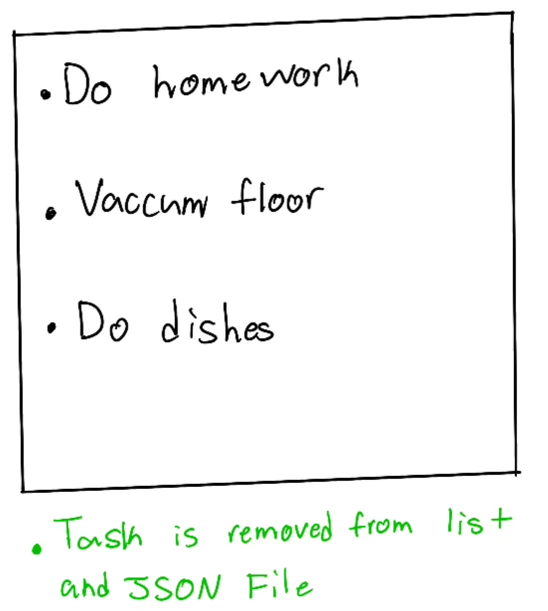 • Do homework
• Vaccum floor
• Do dishes
• Task is removed from list
and JSON File